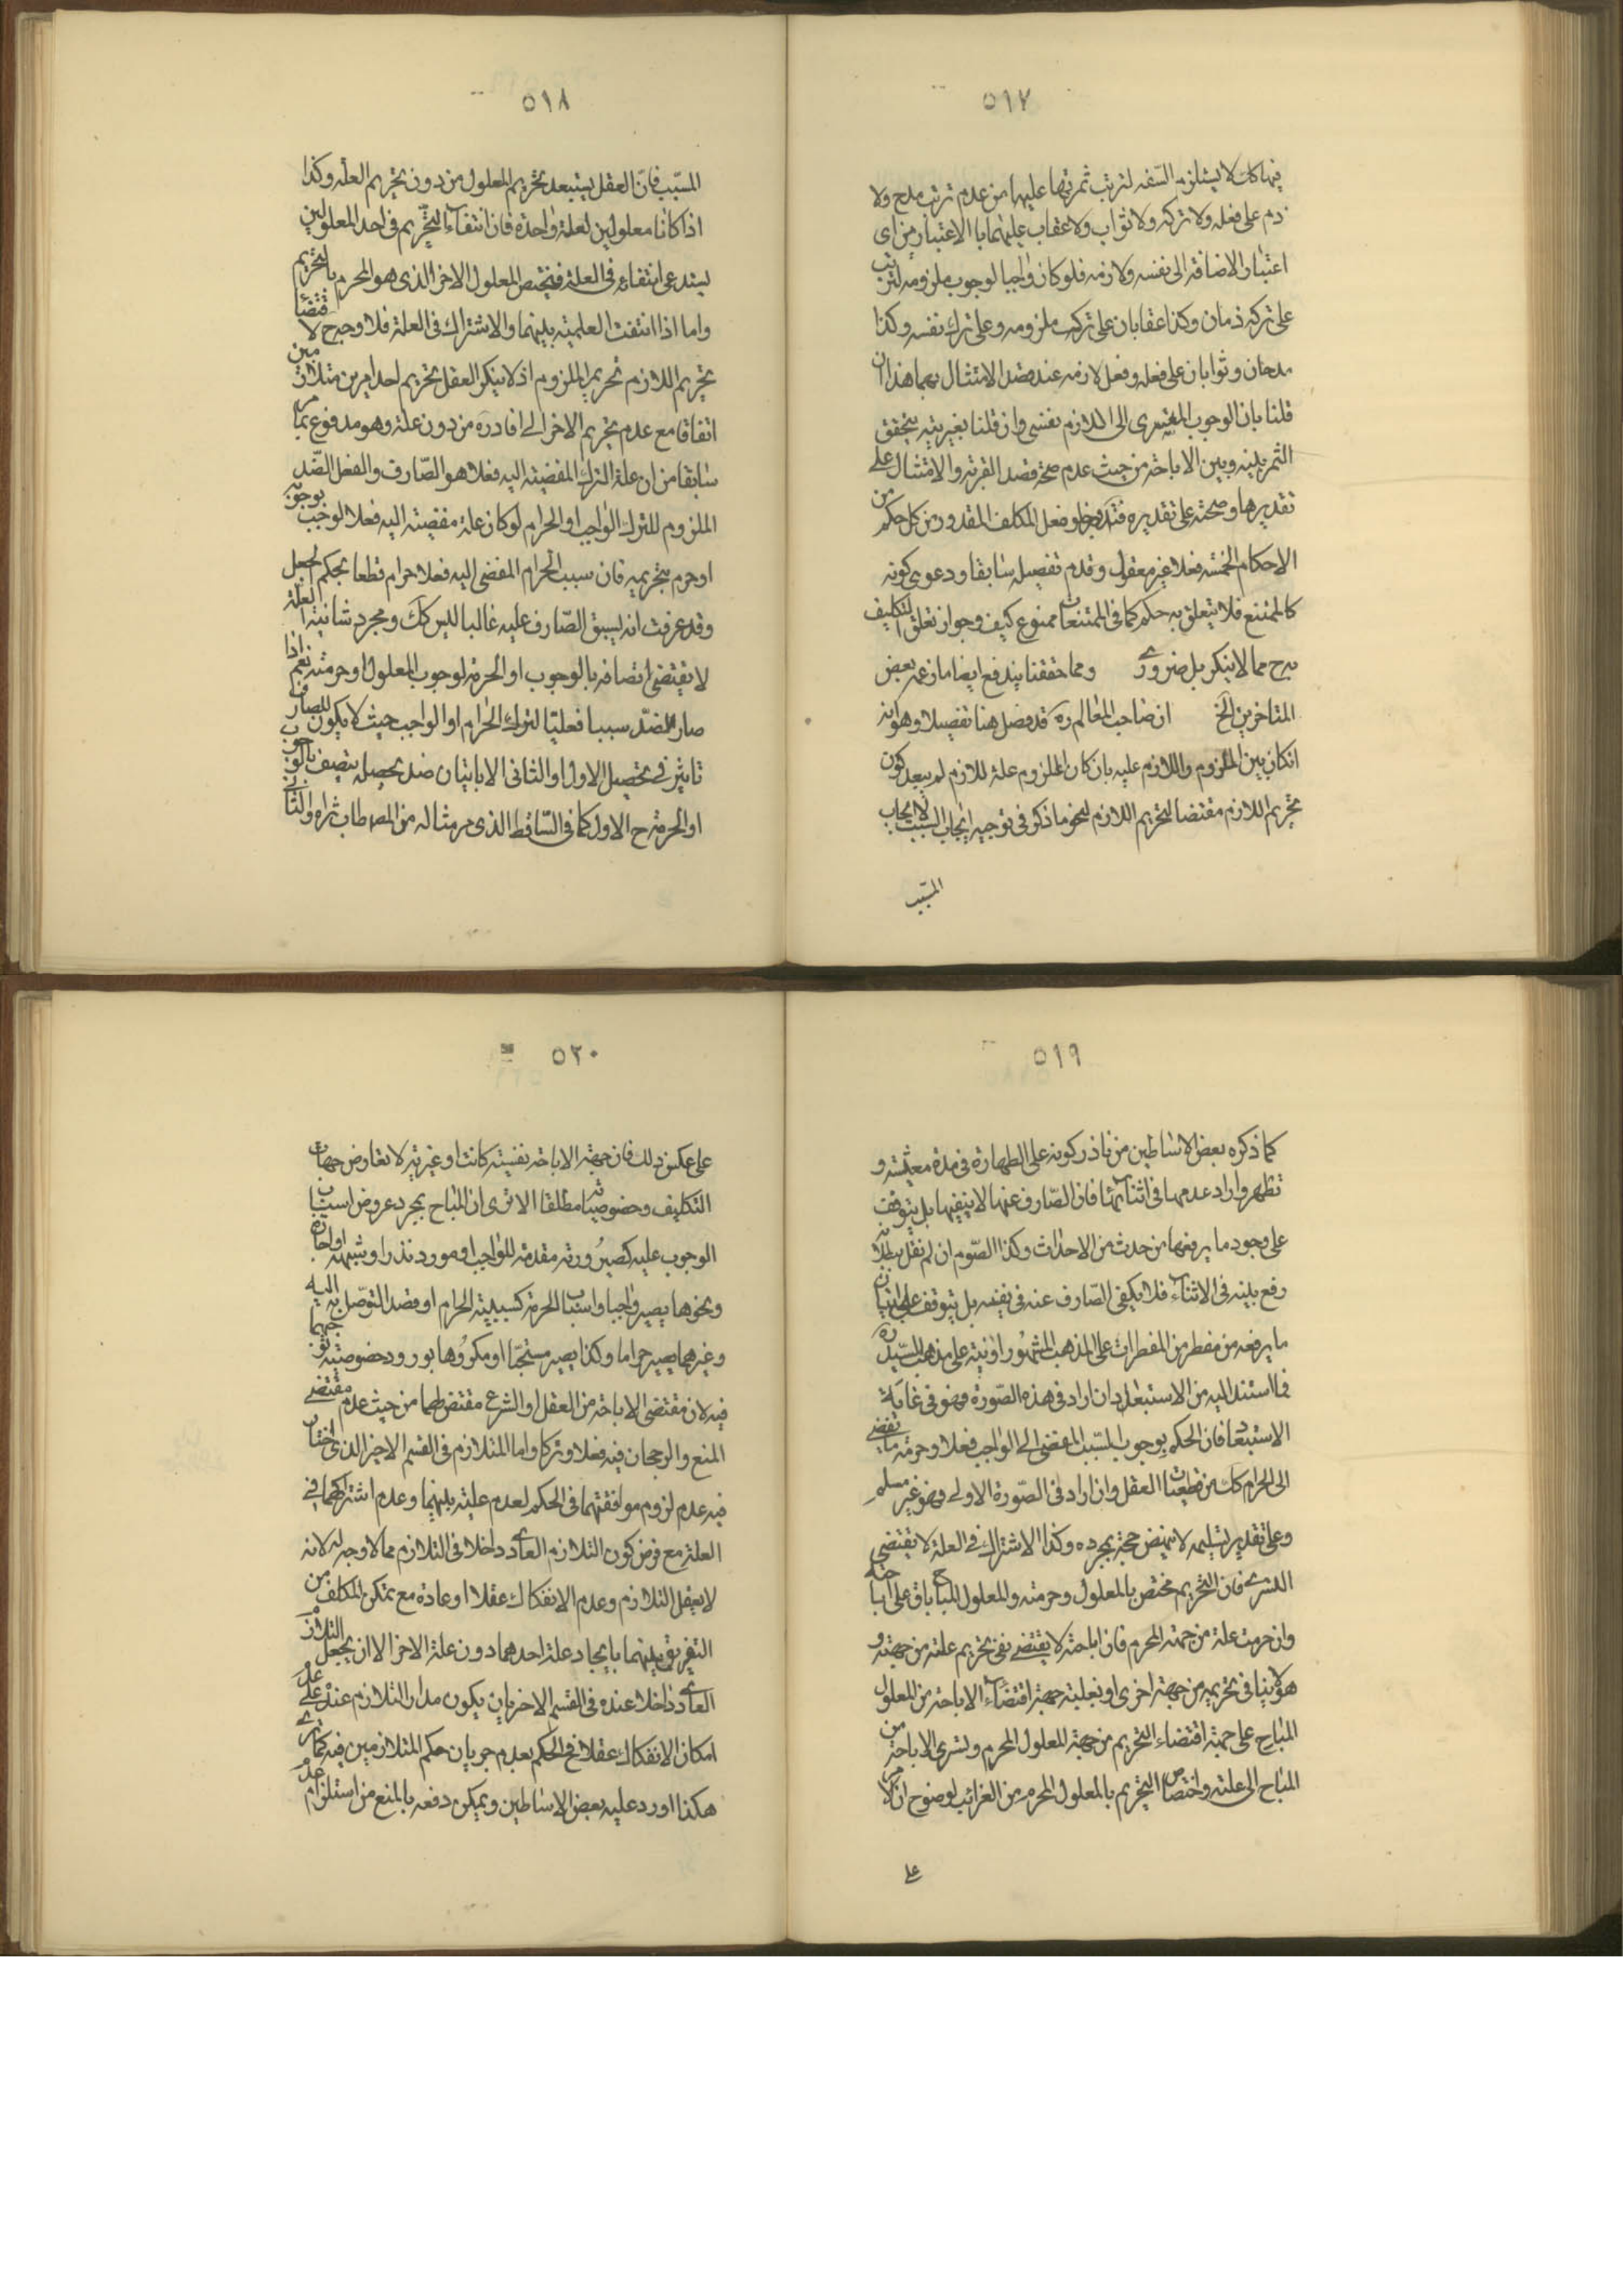 ٥١٧
فيها كك لا يستلزم السّفه لترتب ثمرتها عليها من عدم ترتب مدح ولا
ذم على فعله ولا تركه ولا ثواب ولا عقاب عليهما باالاعتبار من اى
اعتبار الاضافة الى نفسه ولازمه فلو كان واجبا لوجوب ملزومه لترتب
على تركه ذمان وكذا عقابان على ترك ملزومه وعلى ترك نفسه وكذا
مدحان وثوابان على فعله وفعل لازمه عند قصد الامتثال بهما هذا ان
قلنا بان الوجوب المتسرى الى اللازم نفسى وان قلنا بغيريته يتحقق
الثمر بينه وبين الاباحة من حيث عدم صحة قصد القربة والامتثال على
تقديرها وصحته على تقديره فتدبر وخلو فعل المكلف المقدور من كل حكم من
الاحكام الخمسة فعلا غير معقول وقدم تفصيله سابقا ودعوى كونه
كالممتنع فلا يتعلق به حكم كما فى الممتنعات ممنوع كيف وجواز تعلق التكليف
به ح مما لا ينكر بل ضرورى ومما حققنا يندفع ايضا ما زعمه بعض
المتاخرين الخ ان صاحب المعالم ره قد فصل هنا تفصيلا وهو انه
انكان بين الملزوم واللازم عليه بان كان الملزوم علة للازم لم يبعد كون
تحريم اللازم مقتضا لتحريم اللازم لنحو ما ذكر فى توجيه ايجاب السبب لايجاب
المسبّب
٥١٨
المسبّب فانّ العقل يستبعد تحريم المعلول من دون تحريم العلة وكذا
اذا كانا معلولين لعلة واحدة فان انتفاء التحريم فى احد المعلولين
يستدعى انتفاءه فى العلة فيختص المعلول الاخر الذى هو المحرم بالتحريم
واما اذا انتفت العلية بينهما والاشتراك فى العلة فلا وجه ح لاقتضاء
تحريم اللازم تحريم الملزوم اذ لا ينكر العقل تحريم احد امرين متلازمين
اتفاقا مع عدم تحريم الاخر الى افاده ره من دون علة وهو مدفوع بما مر
سابقا من ان علة الترك المفضية اليه فعلا هو الصّارف والفعل الضّد
الملزوم للترك الواجب او الحرام لو كان علة مفضية اليه فعلا لوجب بوجوبه
او حرم بتحريمه فان سبب الحرام المفضى اليه فعلا حرام قطعا بحكم الجعل
وقد عرفت انه يسبق الصّارف عليه غالبا ليس كك ومجرد شانية العلة
لا يقتضى اتصافه بالوجوب او الحرمة لوجوب المعلول او حرمته نعم اذا
صار الضدّ سببا فعليّا لترك الحرام او الواجب حيث لا يكون للصارف
تاثير فى تحصيل الاول او الثانى الا باتيان ضد يحصله يتصف بالوجوب
او الحرمة ح الاول كما فى السّاقط الذى مر مثاله من المص طاب ثراه والثانى
٥١٩
كما ذكره بعض الاساطين من ناذر كونه على الطهارة فى مدة معيّنة و
تطهر واراد عدمها فى اثنائها فان الصّارف عنها لا ينفيها بل يتوقف
على وجود ما يرفعها من حدث من الاحداث وكذا الصّوم ان لم نقل ببطلانه
رفع بنية فى الاثناء فلا يكفى الصّارف عنه فى نفسه بل يتوقف على اتيان
ما يرفعه من مفطر من المفطرات على المذهب المشهور او نية على مذهب السّيد ره
فما استند اليه من الاستبعاد ان اراد فى هذه الصّورة فهو فى غاية
الاستبعاد فان الحكم بوجوب المسبّب المفضى الى الواجب فعلا وحرمة ما يفضى
الى الحرام كك من قطعيّات العقل وان اراد فى الصّورة الاولى فهو غير مسلم
وعلى تقدير تسليمه لا ينهض حجة بمجرده وكذا الاشتراك فى العلة لا يقتضى
التسرى فان التحريم مختص بالمعلول وحرمته والمعلول المباح باق على اباحته
وان حرمت علة من جهة المحرم فان اباحته لا يقتضى نفى تحريم علته من جهته و
هو لا ينافى تحريمه من جهة اخرى او تغليبه جهة اقتضاء الاباحة من المعلول
المباح على جهة اقتضاء التحريم من جهة المعلول المحرم وتسرى الاباحة من
المباح الى علته واختصاص التحريم بالمعلول المحرم من الغرائب لوضوح ان الامر
على
٥٢٠
على عكس ذلك فان جهة الاباحة نفسية كانت او غيرية لا تعارض جهات
التكليف وخصوصيّاته مطلقا الا ترى ان المباح بمجرد عروض اسباب
الوجوب عليه كصيرورته مقدمة للواجب او مورد نذر او شبهه او اجارة
ونحوها يصير واجبا واسباب الحرمة كسببية الحرام او قصد التوصّل به اليه
وغيرهما يصير حراما وكذا يصير مستحبّا او مكروها بورود خصوصية توجبهما
فيه لان مقتضى الاباحة من العقل او الشرع مقتض لهما من حيث عدم مقتضى
المنع والرجحان فيه فعلا وتركا واما المتلازم فى القسم الاخر الذى اختار
فيه عدم لزوم موافقتهما فى الحكم لعدم علية بينهما وعدم اشتراكهما فى
العلة مع فرض كون التلازم العادى داخلا فى التلازم مما لا وجه له لانه
لا يعقل التلازم وعدم الانفكاك عقلا او عادة مع تمكن المكلف من
التفريق بينهما بايجاد علة احدهما دون علة الاخر الا ان يجعل التلازم
العادى داخلا عنده فى القسم الاخر بان يكون مدار التلازم عنده على عدم
امكان الانفكاك عقلا فح الحكم بعدم جريان حكم المتلازمين فيه كما ترى
هكذا اورد عليه بعض الاساطين ويمكن دفعه بالمنع من استلزام عدم